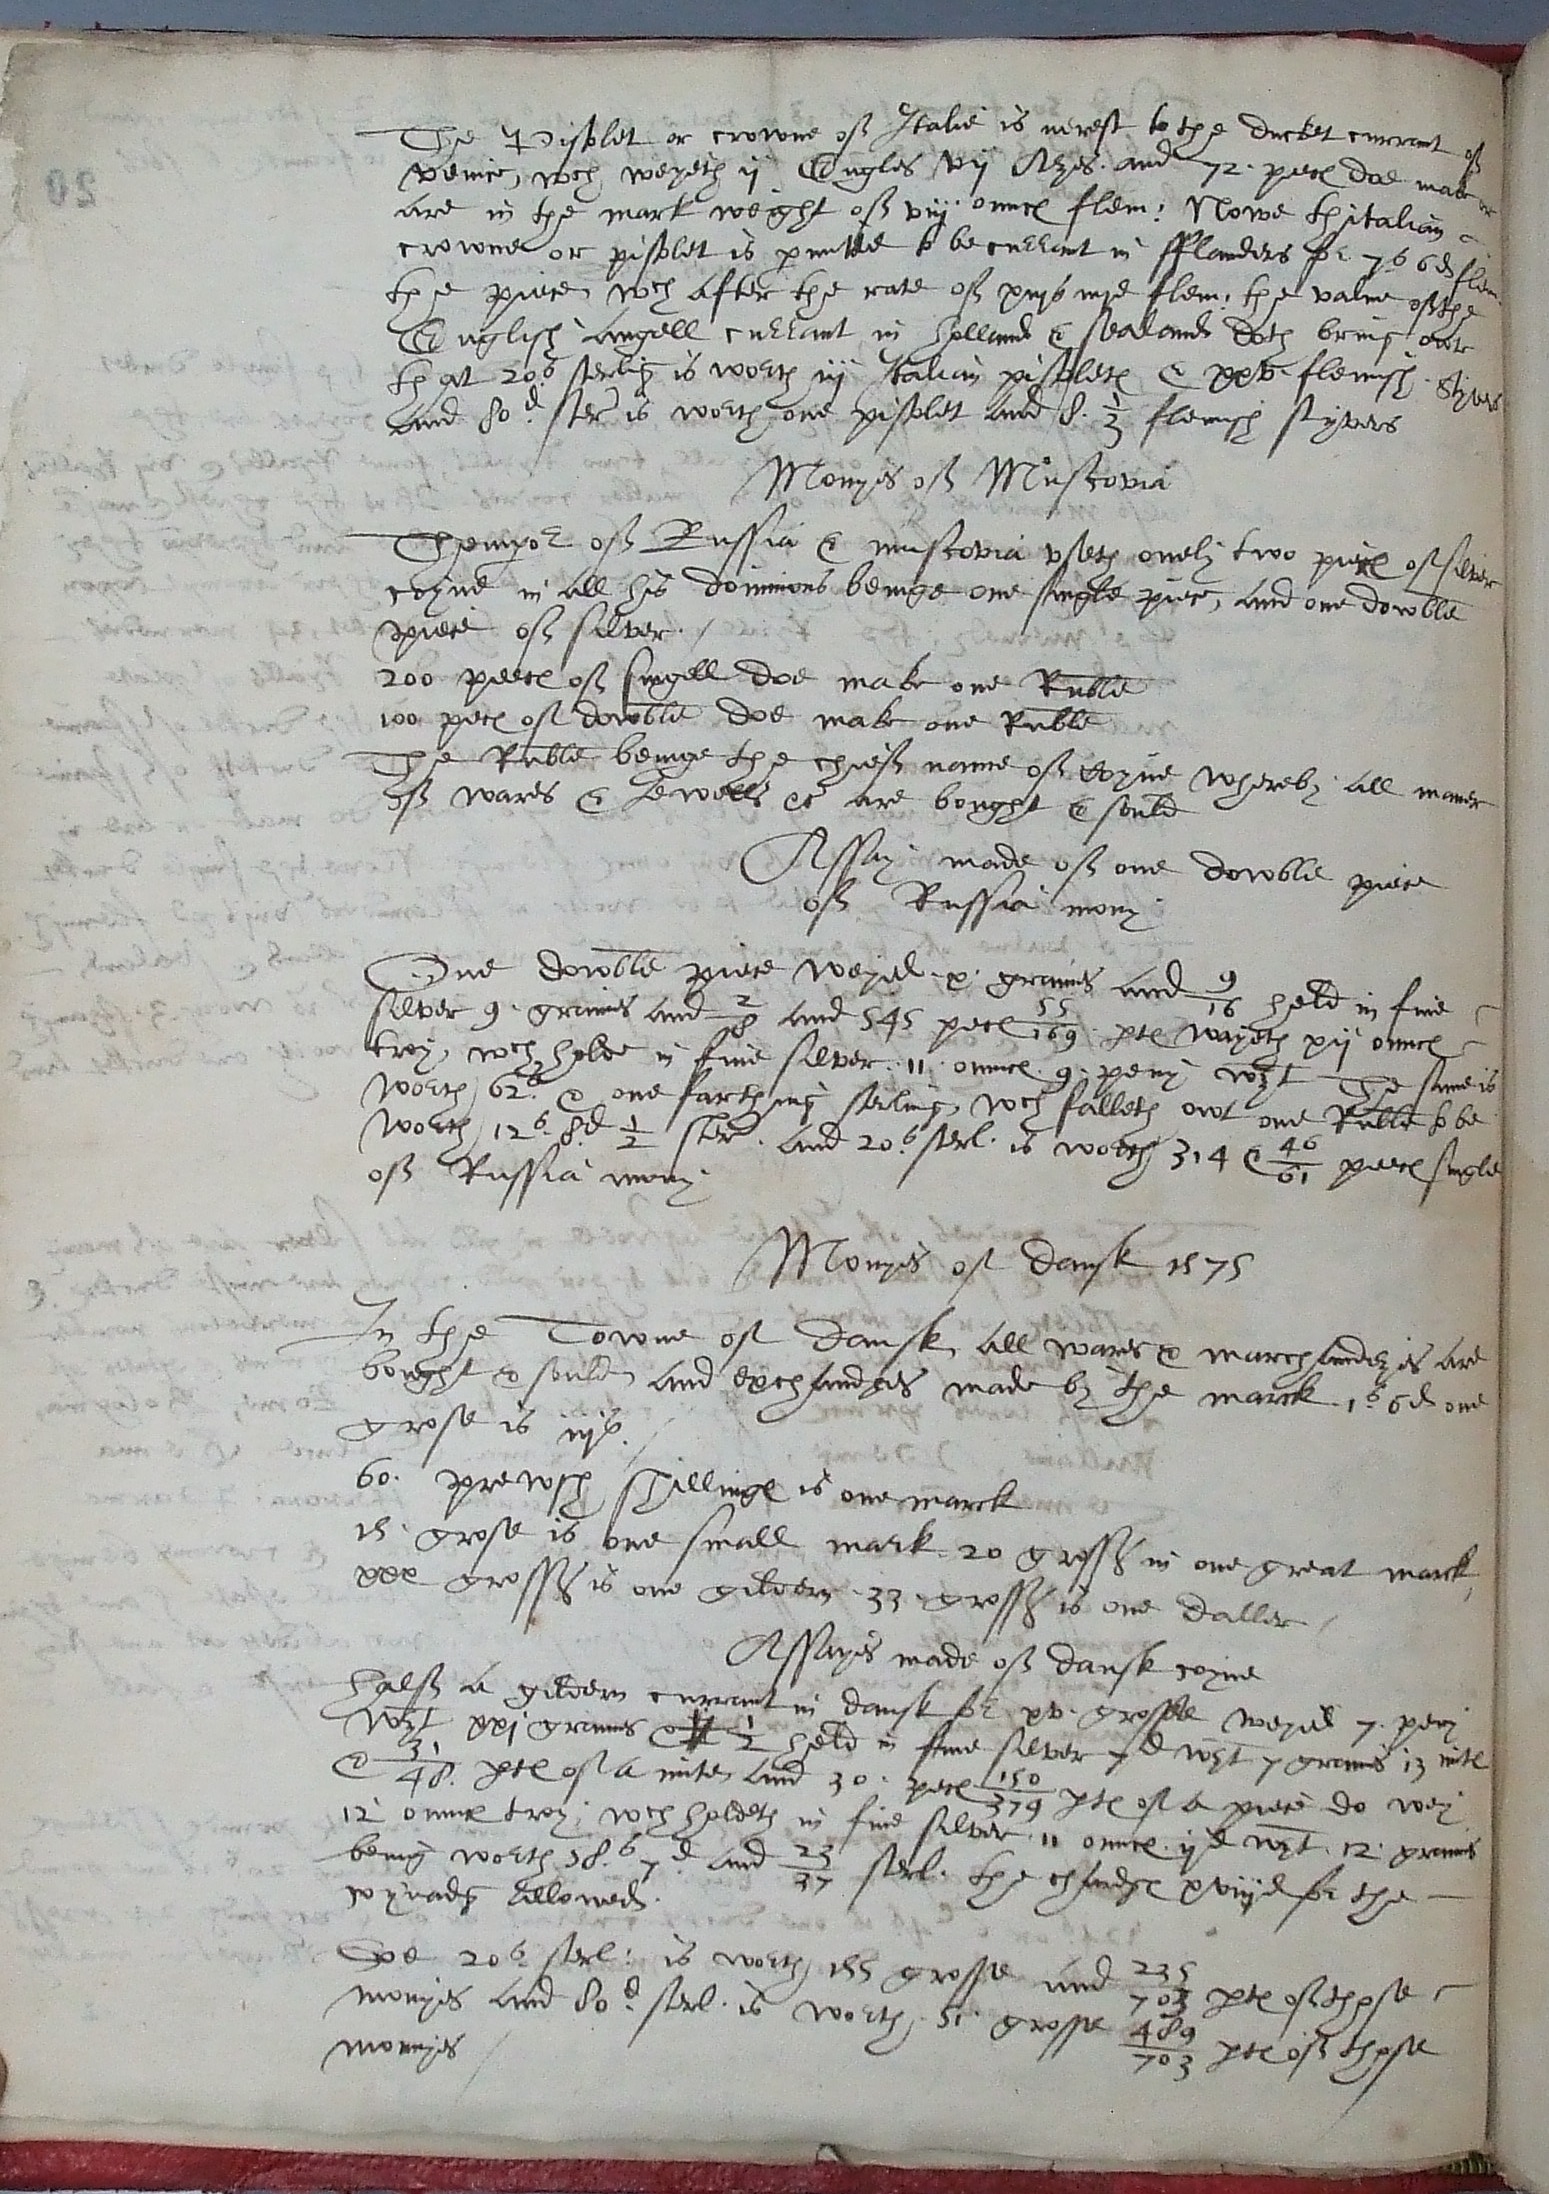 The Pistolet or crowne off Italie is nerest to the Ducket currant off
venice, wch weyeth ij Engles vij Azes. and 72. peces doe make or
are in the mark weight off viij ounces flem: Nowe thitalian
crowne or pistolet is permitted to be currant in fflanders for 7s 6d flem.
the piece, wch after the rate off flem: the value off the
English Angell currant in holland & sealand doth bring owt
that 20s sterling is worth iij Italian pistoletes & xxv flemish Styvers
and 80d. ster is worth one pistolet and 8. 1/3 flemish styvers
Monyes off Muscovia
Themperor off Russia & muscovia vseth onely two pieces of silver
coyne in all his dominions beinge one single piece, and one dowble
piece off silver. /
200 peeces off singell doe make one Ruble
100 peces of dowble doe make one Ruble
The Ruble beinge the chieff name off coyne whereby all maner
off wares & Jewells &c are bought & sould
Assay made off one dowble piece
off Russia mony
One dowble piece weyed x graines and 9/16 held in fine
silver 9. graines and 2/8 and 545 peces 55/169 ptes wayeth xij ounces
troy, wch holde in fine silver 11 ounces. 9. peny wt The same is
worth 62s. & one farthing sterling, wch falleth owt one Ruble to be
worth 12s. 8d 1/2 ster. and 20s sterl. is worth 314 & 46/61 peeces single
off Russia mony
Monyes of dansk 1575
In the Towne of dansk all wares & marchandizes are
bought & sould and exchandges made by the marck 1s 6d one
grose is iijs. /
60. prewsh shillinges is one marck
15. grose is one small mark 20 grossh in one great marck,
xxx grossh is one gildern 33. grossh is one daller /
Assayes made off dansk coyne
halff a gildern currant in dansk for xv. grosse weyed 7. peny
wt xxj graines 1/2 held in fine silver 7d wt 7 graines 13 mites
& 31/48. ptes of a mite, and 30. peces 150/379 ptes of a piece do wey
12 ounces troy, wch holdeth in fine silver. 11 ounces. ijd wt. 12. graines
being worth 58.s 7d and 23/37 sterl. the chardges xviijd for the
coynadg allowed.
Soe 20s sterl: is worth 155 grosse and 235/703 ptes off these
monyes and 80d. sterl. is worth. 51. grosse 489/703 ptes off these
monyes /